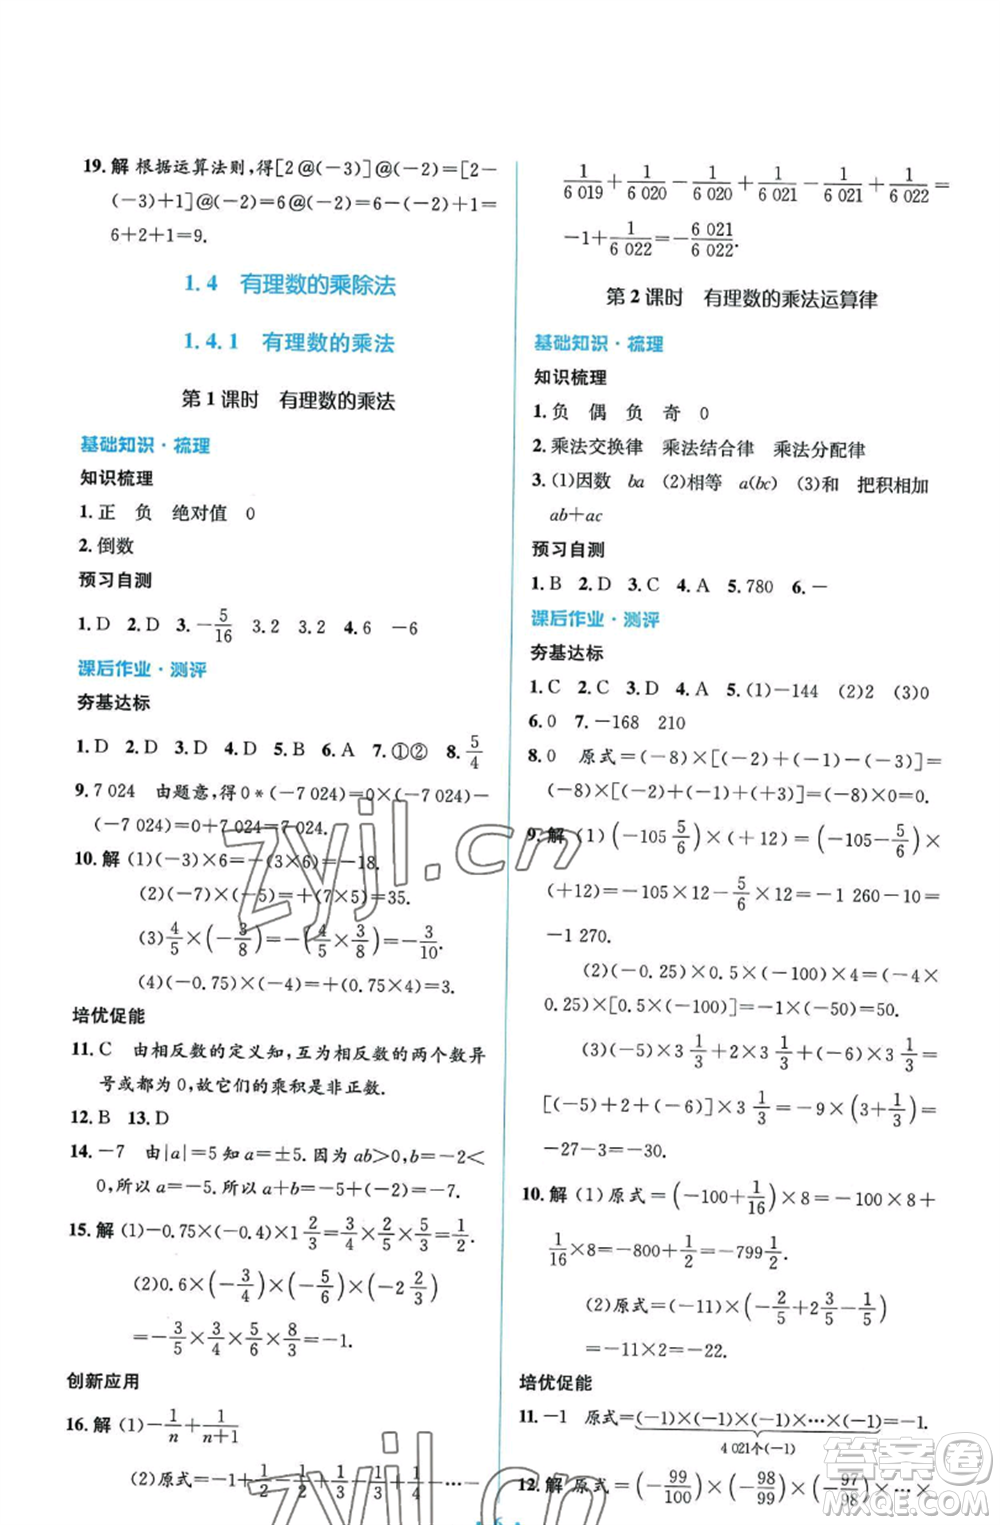 19. 解 根据运算法则,得[2@(-3)]@(-2)=[2-
(-3)+1]@(-2)=6@(-2)=6-(-2)+1=
6+2+1=9.
1.4 有理数的乘除法
1.4.1 有理数的乘法
第1课时 有理数的乘法
基础知识·梳理
知识梳理
1. 正 负 绝对值 0
2. 倒数
预习自测
1. D 2. D 3. -5/16 3.2 3.2 4. 6 -6
课后作业·测评
夯基达标
1. D 2. D 3. D 4. D 5. B 6. A 7. ①② 8. 5/4
9. 7 024 由题意,得0*(-7 024)=0×(-7 024)-
(-7 024)=0+7 024=7 024.
10. 解 (1)(-3)×6=-(3×6)=-18.
(2)(-7)×(-5)=+(7×5)=35.
(3)4/5×(-3/8)=-(4/5×3/8)=-3/10.
(4)(-0.75)×(-4)=+(0.75×4)=3.
培优促能
11. C 由相反数的定义知,互为相反数的两个数异
号或都为0,故它们的乘积是非正数.
12. B 13. D
14. -7 由|a|=5知a=±5.因为ab>0,b=-2<
0,所以a=-5.所以a+b=-5+(-2)=-7.
15. 解 (1)-0.75×(-0.4)×1 2/3=3/4×2/5×5/3=1/2.
(2)0.6×(-3/4)×(-5/6)×(-2 2/3)
=-3/5×3/4×5/6×8/3=-1.
创新应用
16. 解 (1)-1/n+1/(n+1)
(2)原式=-1+1/2-1/2+1/3-1/3+1/4-…-
1/6 019+1/6 020-1/6 020+1/6 021-1/6 021+1/6 022=
-1+1/6 022=-6 021/6 022.
第2课时 有理数的乘法运算律
基础知识·梳理
知识梳理
1. 负 偶 负 奇 0
2. 乘法交换律 乘法结合律 乘法分配律
3. (1)因数 ba (2)相等 a(bc) (3)和 把积相加
ab+ac
预习自测
1. B 2. D 3. C 4. A 5. 780 6. -
课后作业·测评
夯基达标
1. C 2. C 3. D 4. A 5. (1)-144 (2)2 (3)0
6. 0 7. -168 210
8. 0 原式=(-8)×[(-2)+(-1)+(+3)]=
(-8)×[(-2)+(-1)+(+3)]=(-8)×0=0.
9. 解 (1)(-105 5/6)×(+12)=(-105-5/6)×
(+12)=-105×12-5/6×12=-1 260-10=
-1 270.
(2)(-0.25)×0.5×(-100)×4=(-4×
0.25)×[0.5×(-100)]=(-1)×(-50)=50.
(3)(-5)×3 1/3+2×3 1/3+(-6)×3 1/3=
[(-5)+2+(-6)]×3 1/3=-9×(3+1/3)=
-27-3=-30.
10. 解 (1)原式=(-100+1/16)×8=-100×8+
1/16×8=-800+1/2=-799 1/2.
(2)原式=(-11)×(-2/5+2 3/5-1/5)
=-11×2=-22.
培优促能
11. -1 原式=(-1)×(-1)×(-1)×…×(-1)=-1.
4 021个(-1)
12. 解 原式=(-99/100)×(-98/99)×(-97/98)×…×
zyjl.cn
zyjl.cn
答案卷
MXQE.COM
6